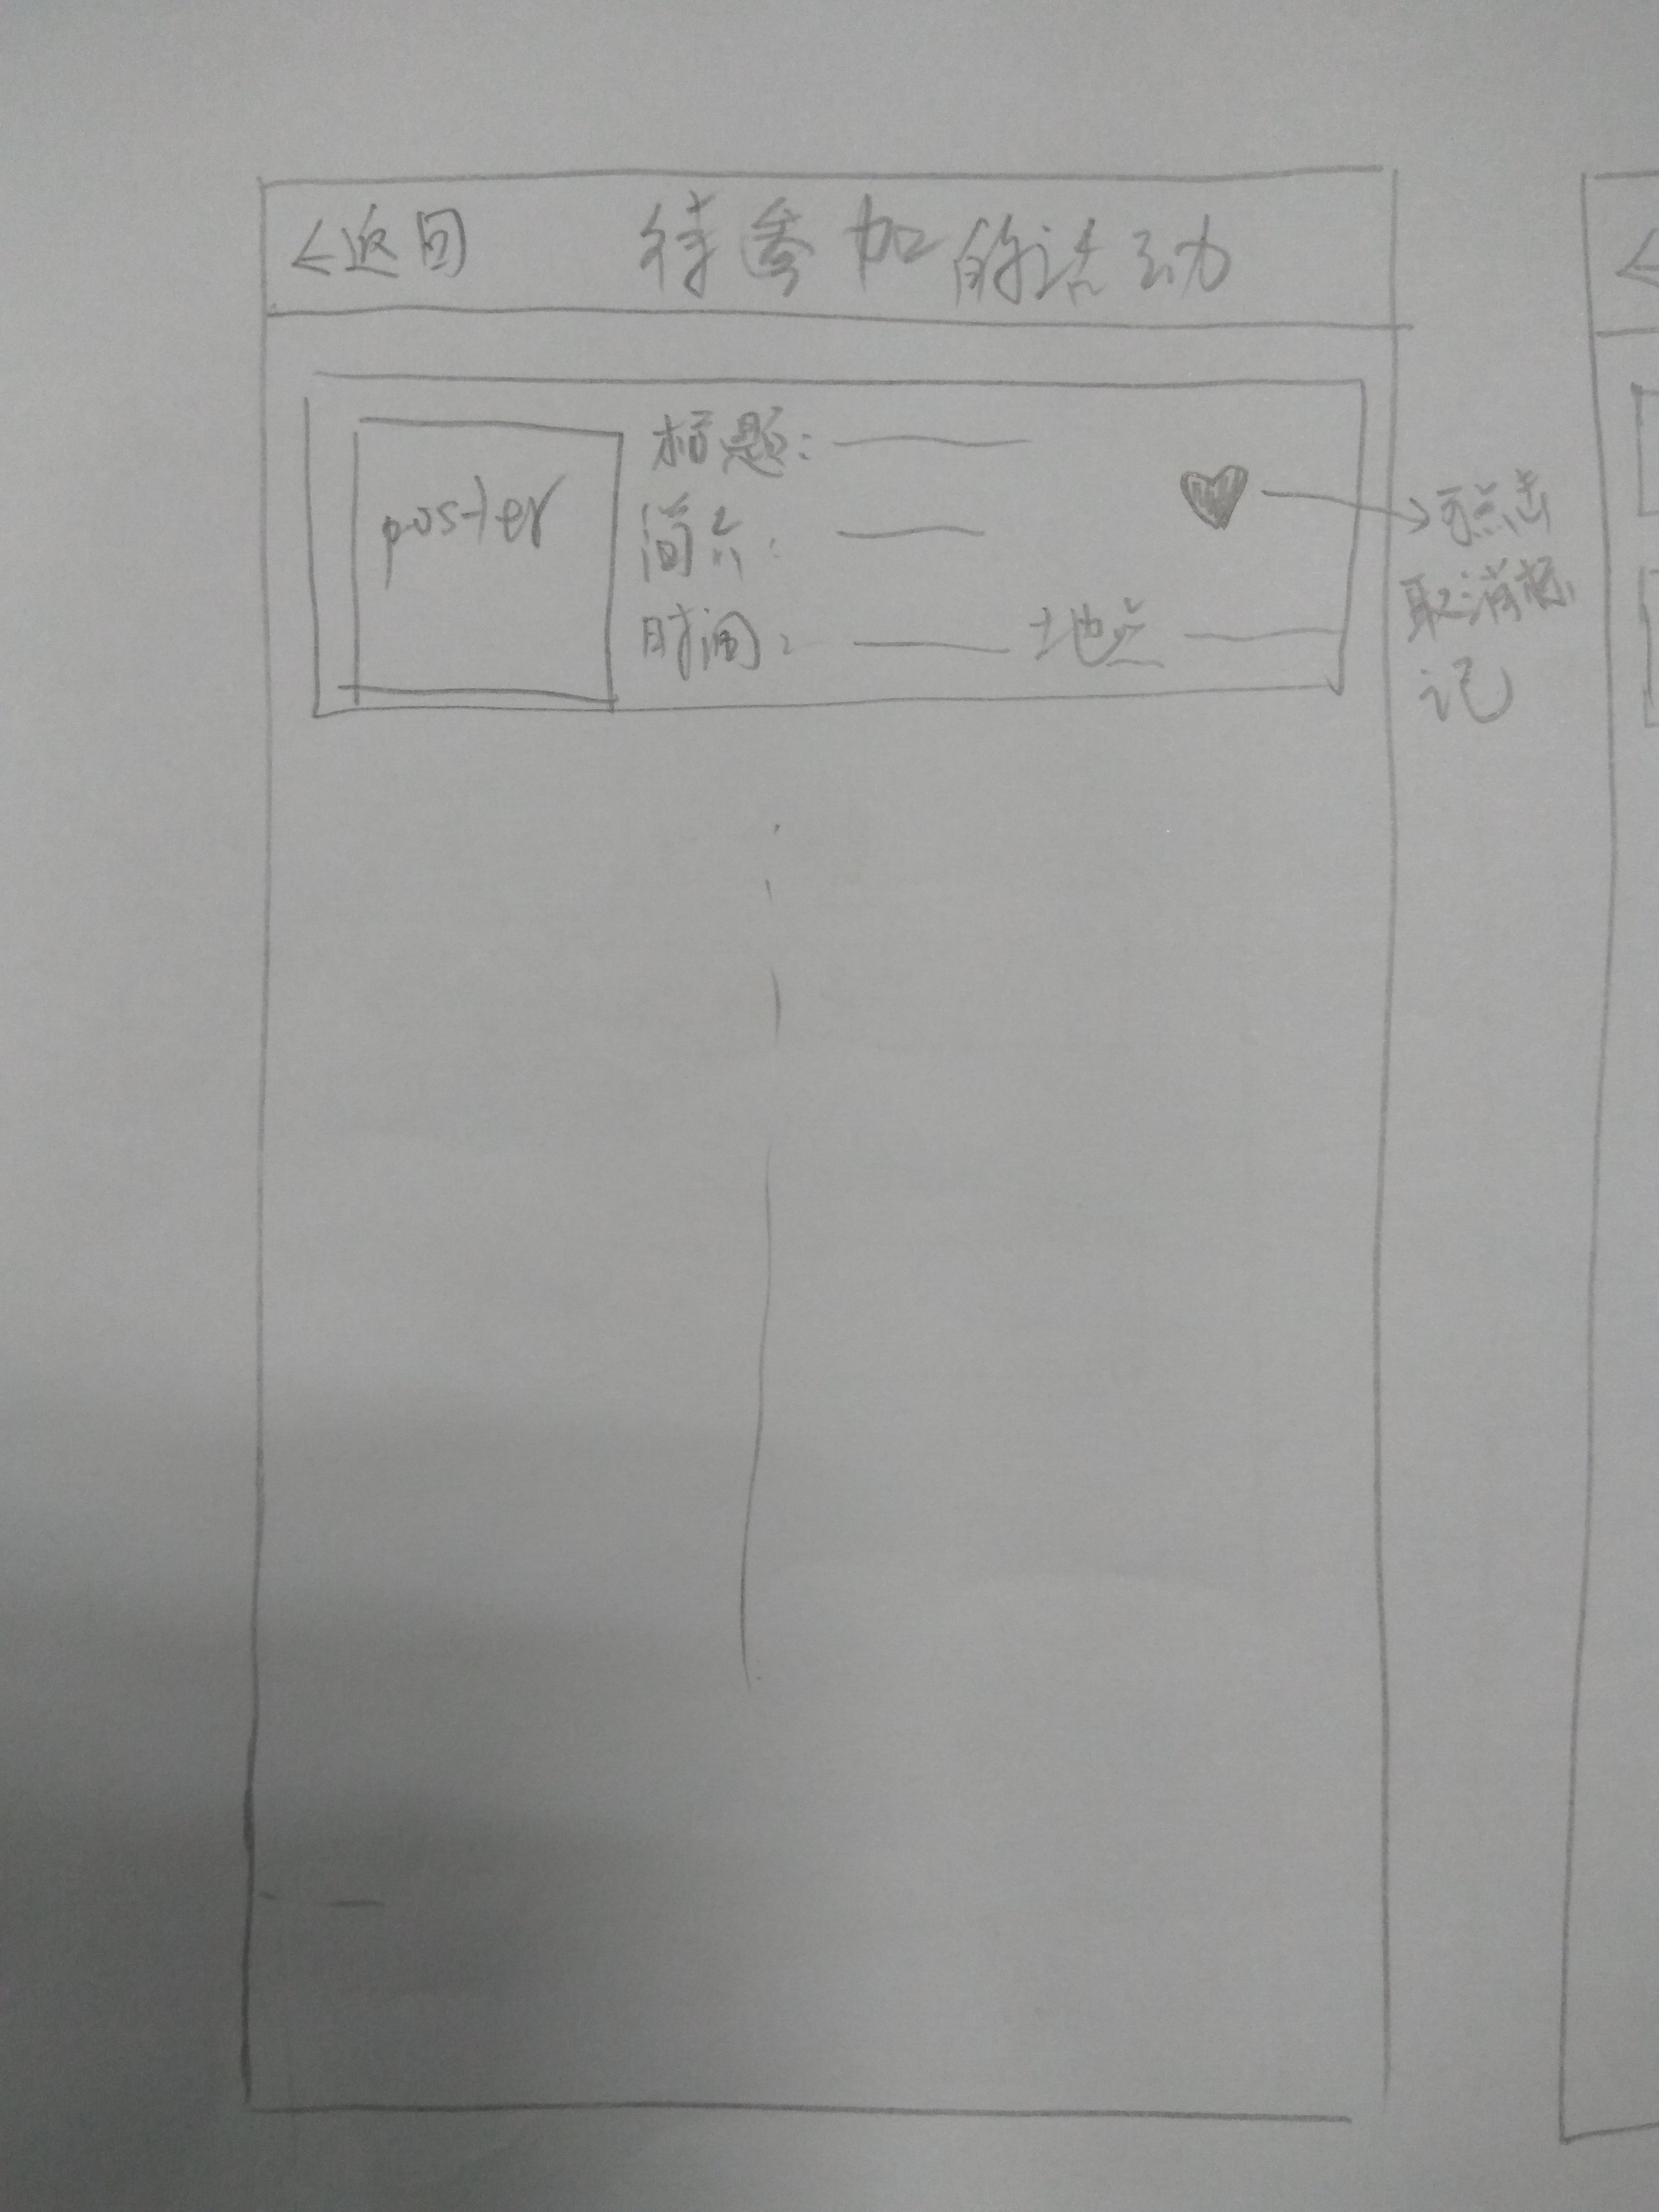 <返回 待参加的活动
poster
标题：
简介：
时间： 地点
可点击
取消标
记
<